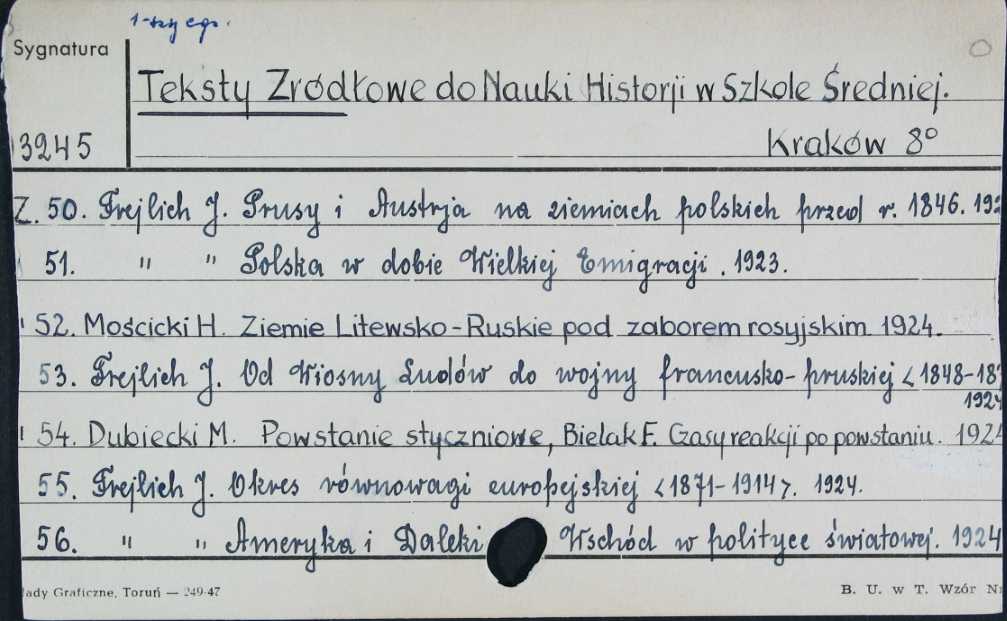 1-szy egz.
Sygnatura
Teksty Zródłowe do Nauki Historji w Szkole Średniej.
3245
Kraków 8°
Z. 50. Frejlich J. Prusy i Austrja na ziemiach polskich przed r. 1846. 192
51. " " Polska w dobie Wielkiej Emigracji. 1923.
52. Mościcki H. Ziemie Litewsko-Ruskie pod zaborem rosyjskim 1924.
53. Frejlich J. Od Wiosny Ludów do wojny francusko-pruskiej <1848-187
1924
54. Dubiecki M. Powstanie styczniowe, Bielak F. Czasy reakcji po powstaniu. 1924
55. Frejlich J. Okres równowagi europejskiej <1871-1914>. 1924.
56. " " Ameryka i Daleki Wschód w polityce światowej. 1924
łady Graficzne, Toruń — 249-47
B. U. w T. Wzór N